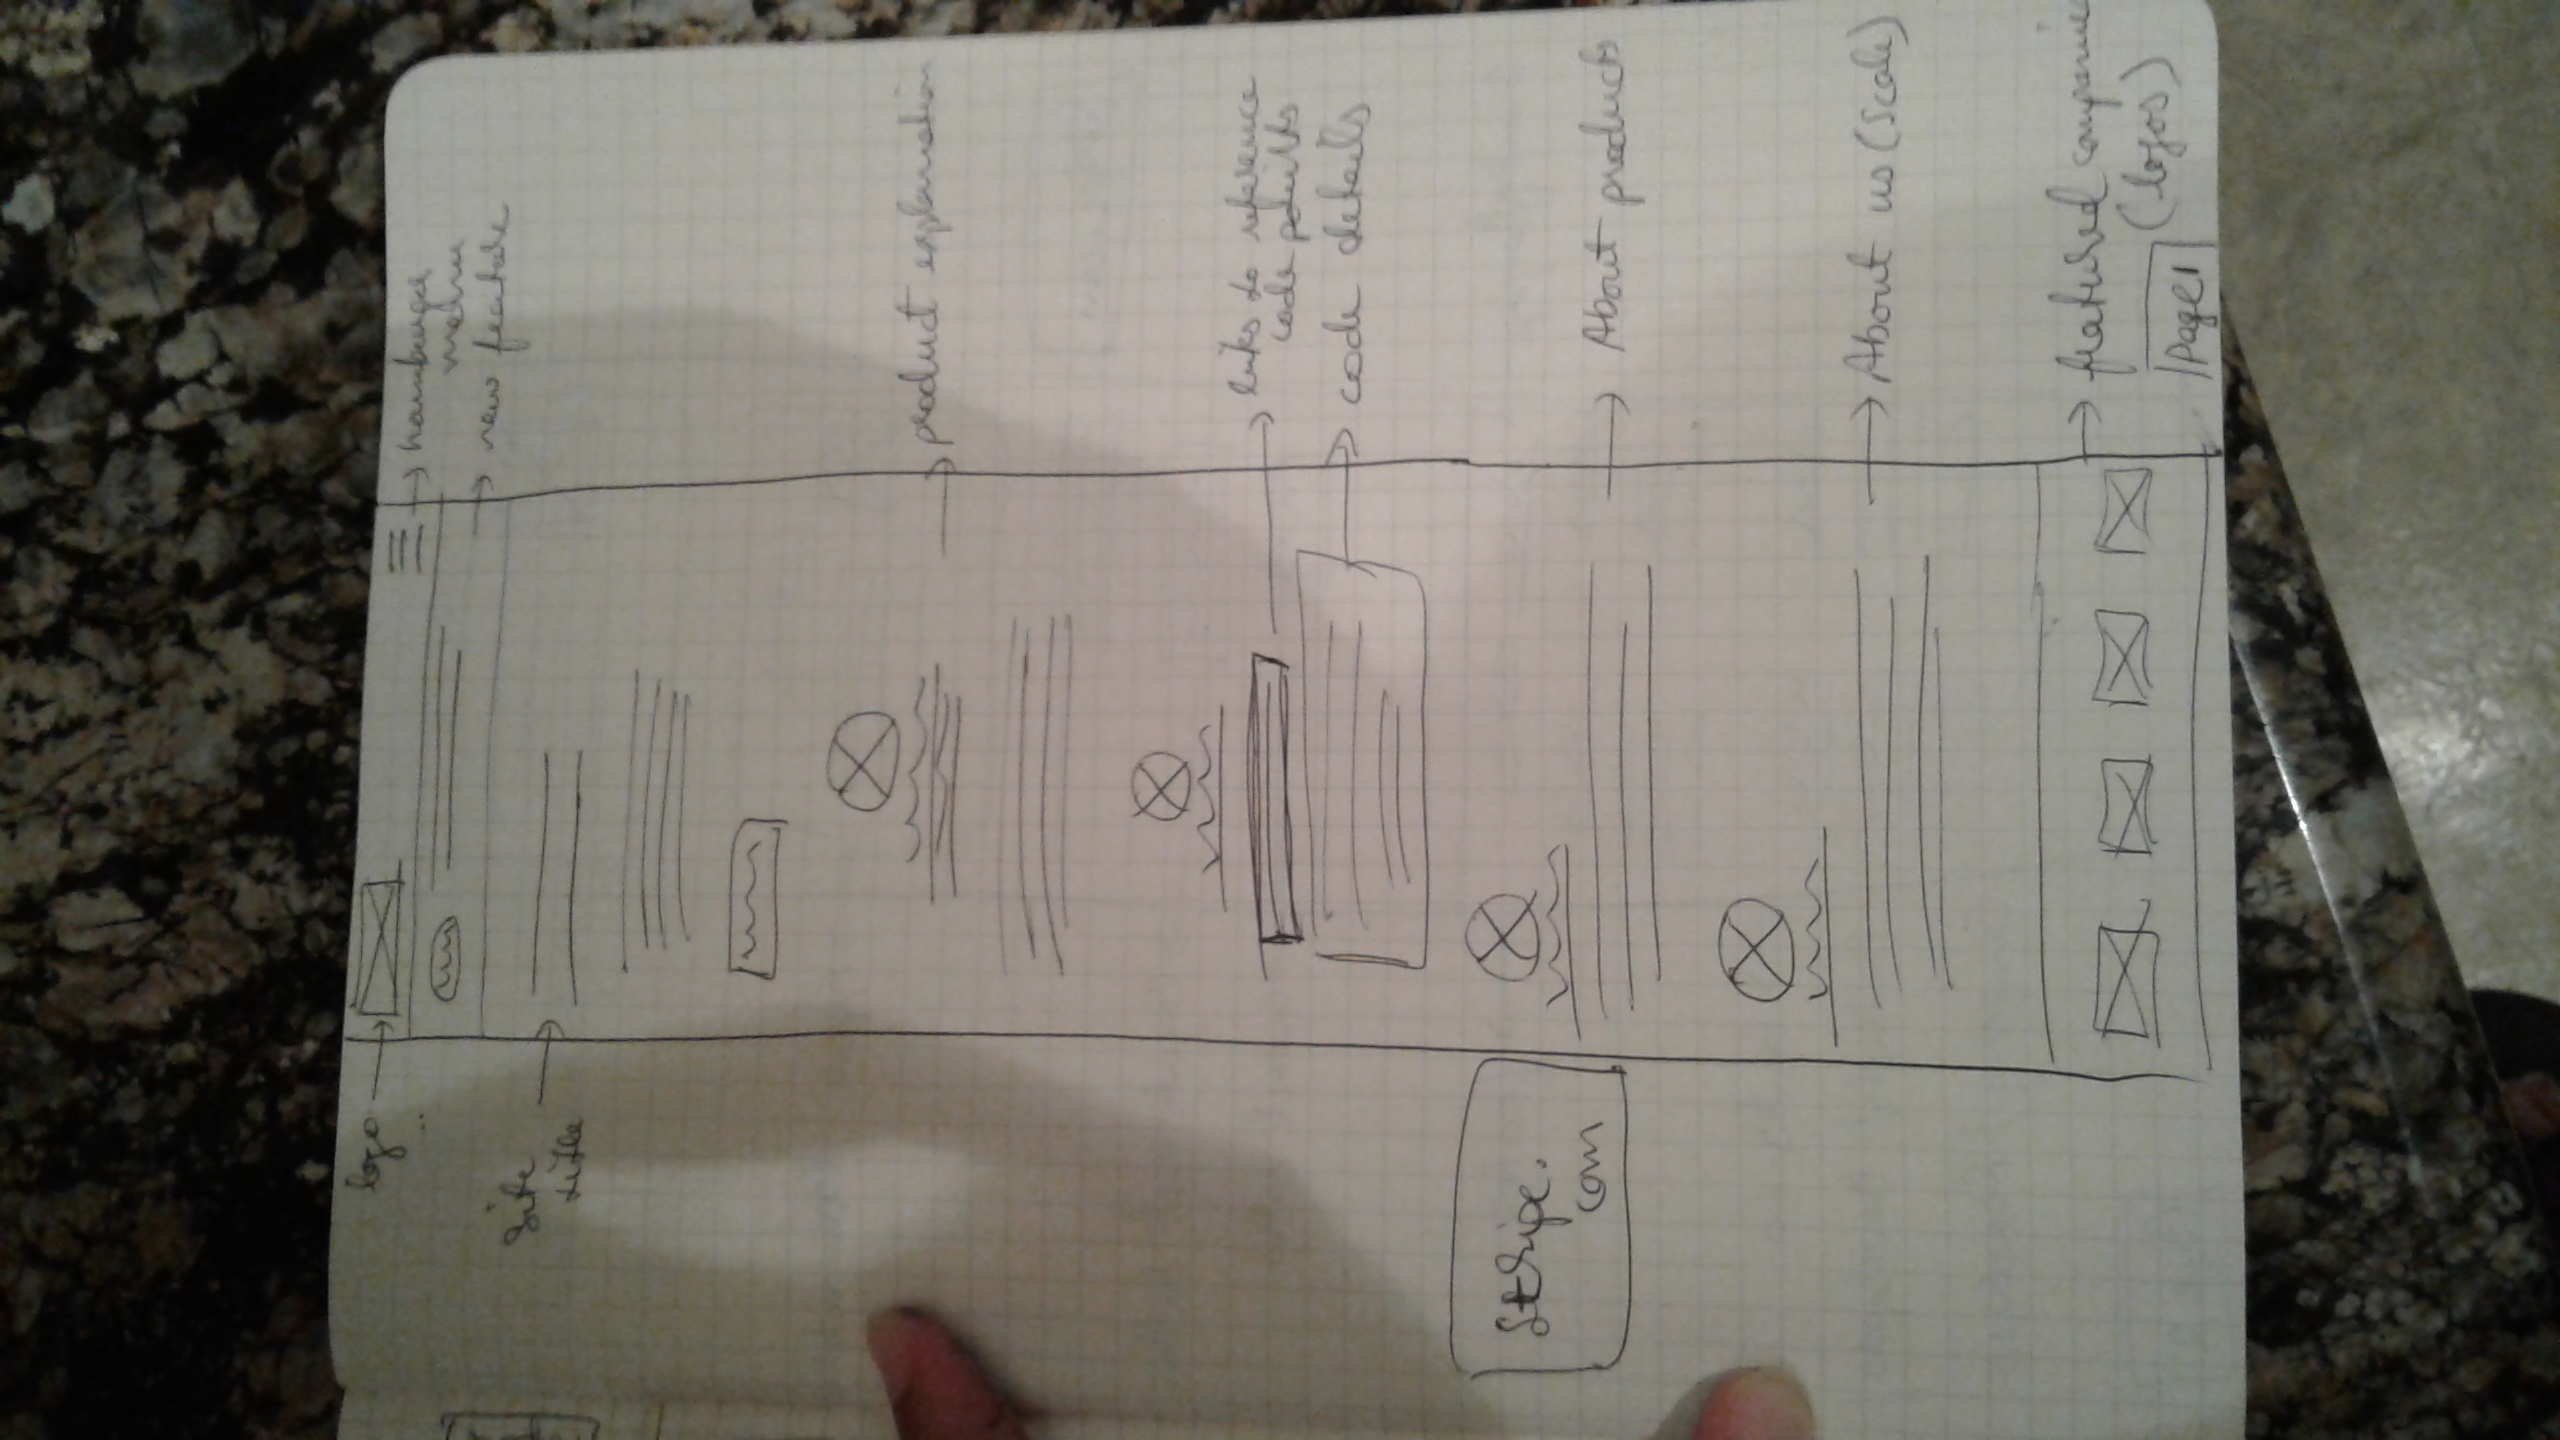 logo
hamburger
menu
new feature
Site
title
product explanation
links to reference
code points
code details
Stripe.
com
About products
About us (Scale)
featured companies
(logos)
Page 1